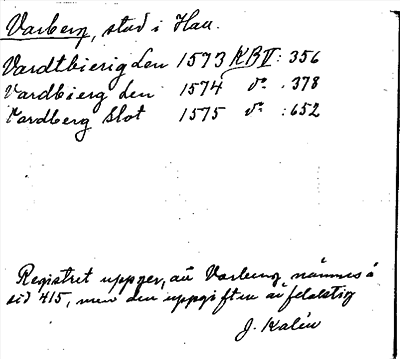 Varberg, stad i Hall.
Vardtbierig den 1573 KB V : 356
Vardbierg den 1574 d:o : 378
Vardberg Slot 1575 d:o : 652
Registret uppger, att Varberg nämnes å
sid 415, men den uppgiften är felaktig
J. Kalén